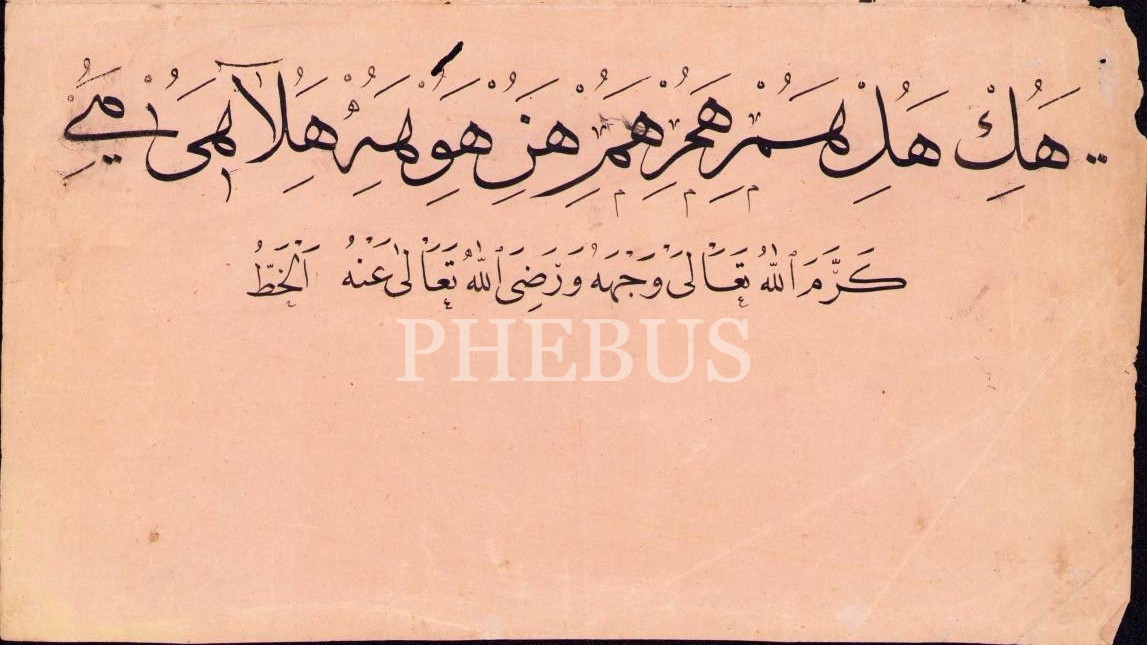 هَكُ هَلُ هَمُ هَمُ هَمُ هَنُ هَوُ هَهُ هَلَا هَىُ
كَرَّمَ ٱللّٰهُ تَعَالٰى وَجْهَهُ وَرَضِىَ ٱللّٰهُ تَعَالٰى عَنْهُ اَلْخَطُّ
PHEBUS